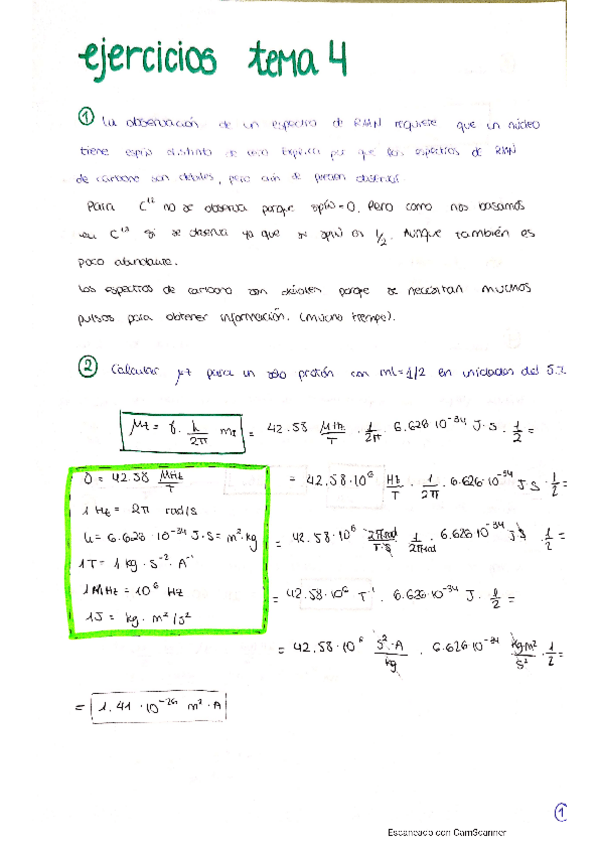 ejercicios tema 4
① La observación de un espectro de RMN requiere que un núcleo
tiene espín distinto de cero. Explica por qué los espectros de RMN
de carbono son débiles, pero aún se pueden observar.
Para C¹² no se observa porque spin = 0. Pero como nos basamos
en C¹³ si se observa ya que su spin es 1/2. Aunque también es
poco abundante.
Los espectros de carbono son débiles porque se necesitan muchos
pulsos para obtener información. (mucho tiempo).
② Calcular μz para un solo protón con mI=1/2 en unidades del S.I.
μz = γ · h/2π mI = 42.58 MHz/T · 1/2π · 6.626 10⁻³⁴ J·s · 1/2 =
γ = 42.58 MHz/T
= 42.58·10⁶ Hz/T · 1/2π · 6.626·10⁻³⁴ J·s · 1/2 =
1 Hz = 2π rad/s
h = 6.628 · 10⁻³⁴ J·s = m²·kg
= 42.58·10⁶ 2πrad/T·s 1/2πrad · 6.626 10⁻³⁴ J·s · 1/2 =
1T = 1 kg · s⁻² · A⁻¹
1 MHz = 10⁶ Hz
= 42.58·10⁶ T⁻¹ · 6.626·10⁻³⁴ J · 1/2 =
1J = kg · m²/s²
= 42.58·10⁶ s²·A/kg · 6.626·10⁻³⁴ kg m²/s² · 1/2 =
= 1.41 · 10⁻²⁶ m²·A
1
Escaneado con CamScanner